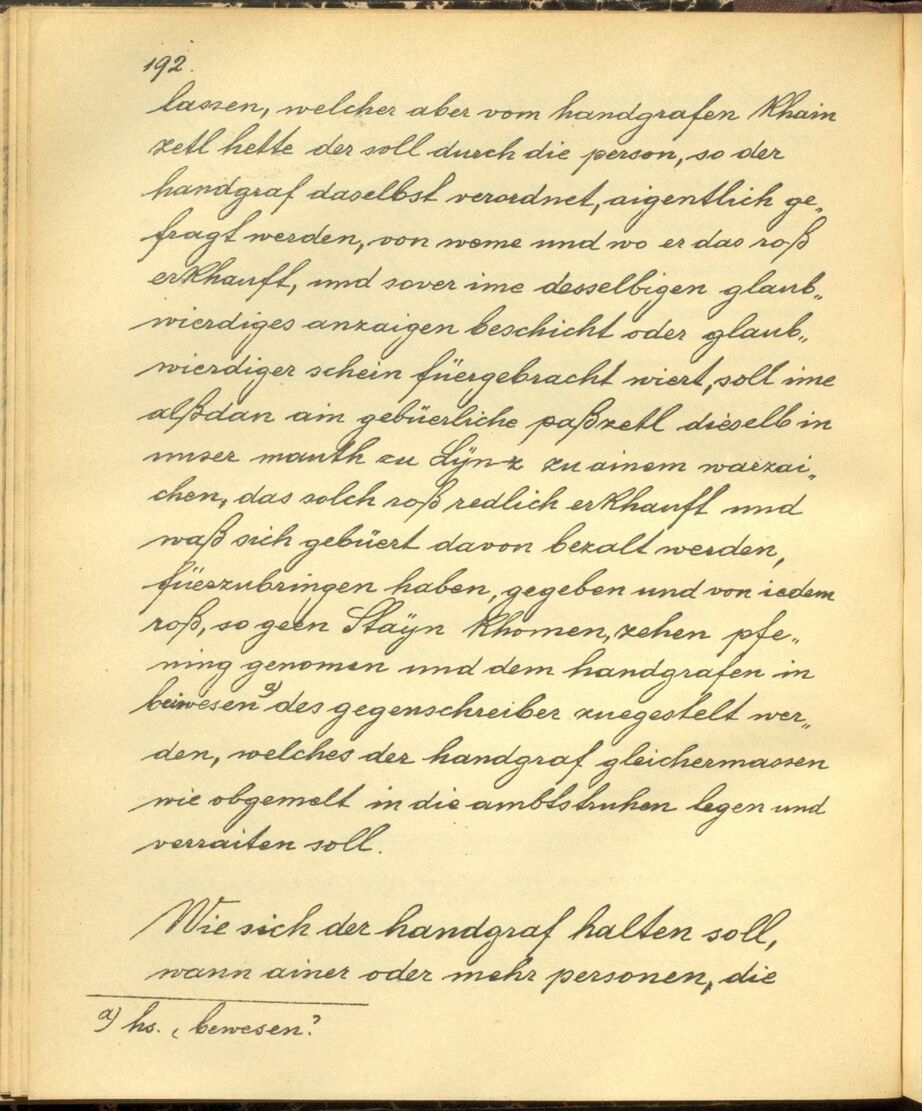 192.
lassen, welcher aber vom handgrafen khain
zetl hette der soll durch die person, so der
handgraf daselbst verordnet, aigentlich ge„
fragt werden, von weme und wo er das roß
erkhauft, und sover ime desselbigen glaub„
wierdiges anzaigen beschicht oder glaub„
wierdiger schein füergebracht wiert, soll ime
alßdan ain gebüerliche paßzetl dieselb in
unser mauth zu Lÿnz zu ainem warzai„
chen, das solch roß redlich erkhauft und
waß sich gebüert davon bezalt werden,
füerzubringen haben, gegeben und von iedem
roß, so geen Staÿn khomen, zehen pfe„
ning genomen und dem handgrafen in
beiwesen a) des gegenschreiber zuegestelt wer„
den, welches der handgraf gleichermassen
wie obgemelt in die ambtstruhen legen und
verraiten soll.
Wie sich der handgraf halten soll,
wann ainer oder mehr personen, die
a) hs. ‚bewesen‘.